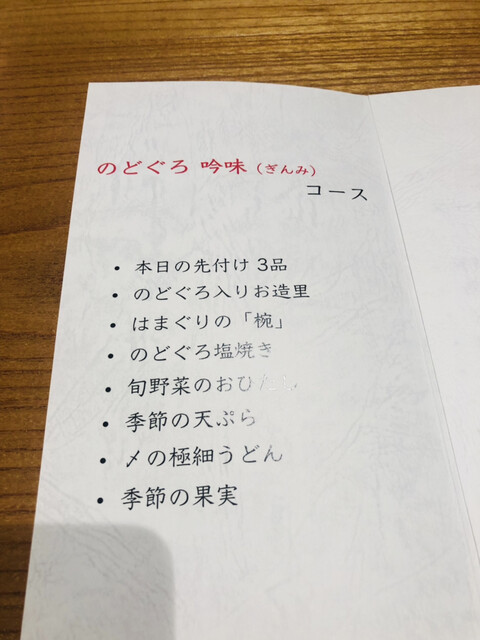 のどぐろ 吟味（ぎんみ）
コース
・本日の先付け 3品
・のどぐろ入りお造里
・はまぐりの「椀」
・のどぐろ塩焼き
・旬野菜のおひたし
・季節の天ぷら
・〆の極細うどん
・季節の果実